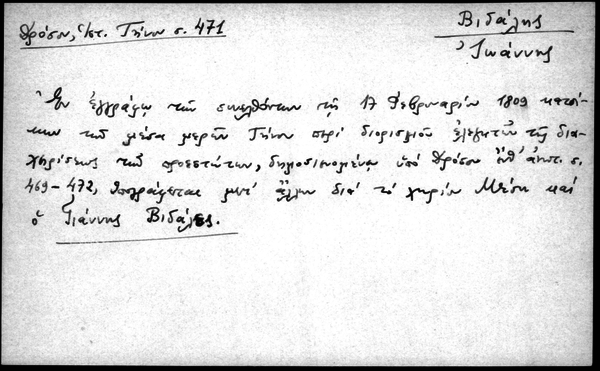 Δρόσου, Ἱστ. Τήνου σ. 471
Βιδάλης
Ἰωάννης
Ἐν ἐγγράφῳ τῶν συνελθόντων τῇ 17 Φεβρουαρίου 1809 κατοί-
κων τῶν μέσα μερῶν Τήνου περὶ διορισμοῦ ἐλεγκτῶν τῆς δια-
χειρίσεως τῶν προεστώτων, δημοσιευομένῳ ὑπὸ Δρόσου ἔνθ' ἀνωτ. σ.
469-472, ὑπογράφεται μετ' ἄλλων διὰ τὸ χωρίον Μέση καὶ
ὁ Γιάννης Βιδάλης.